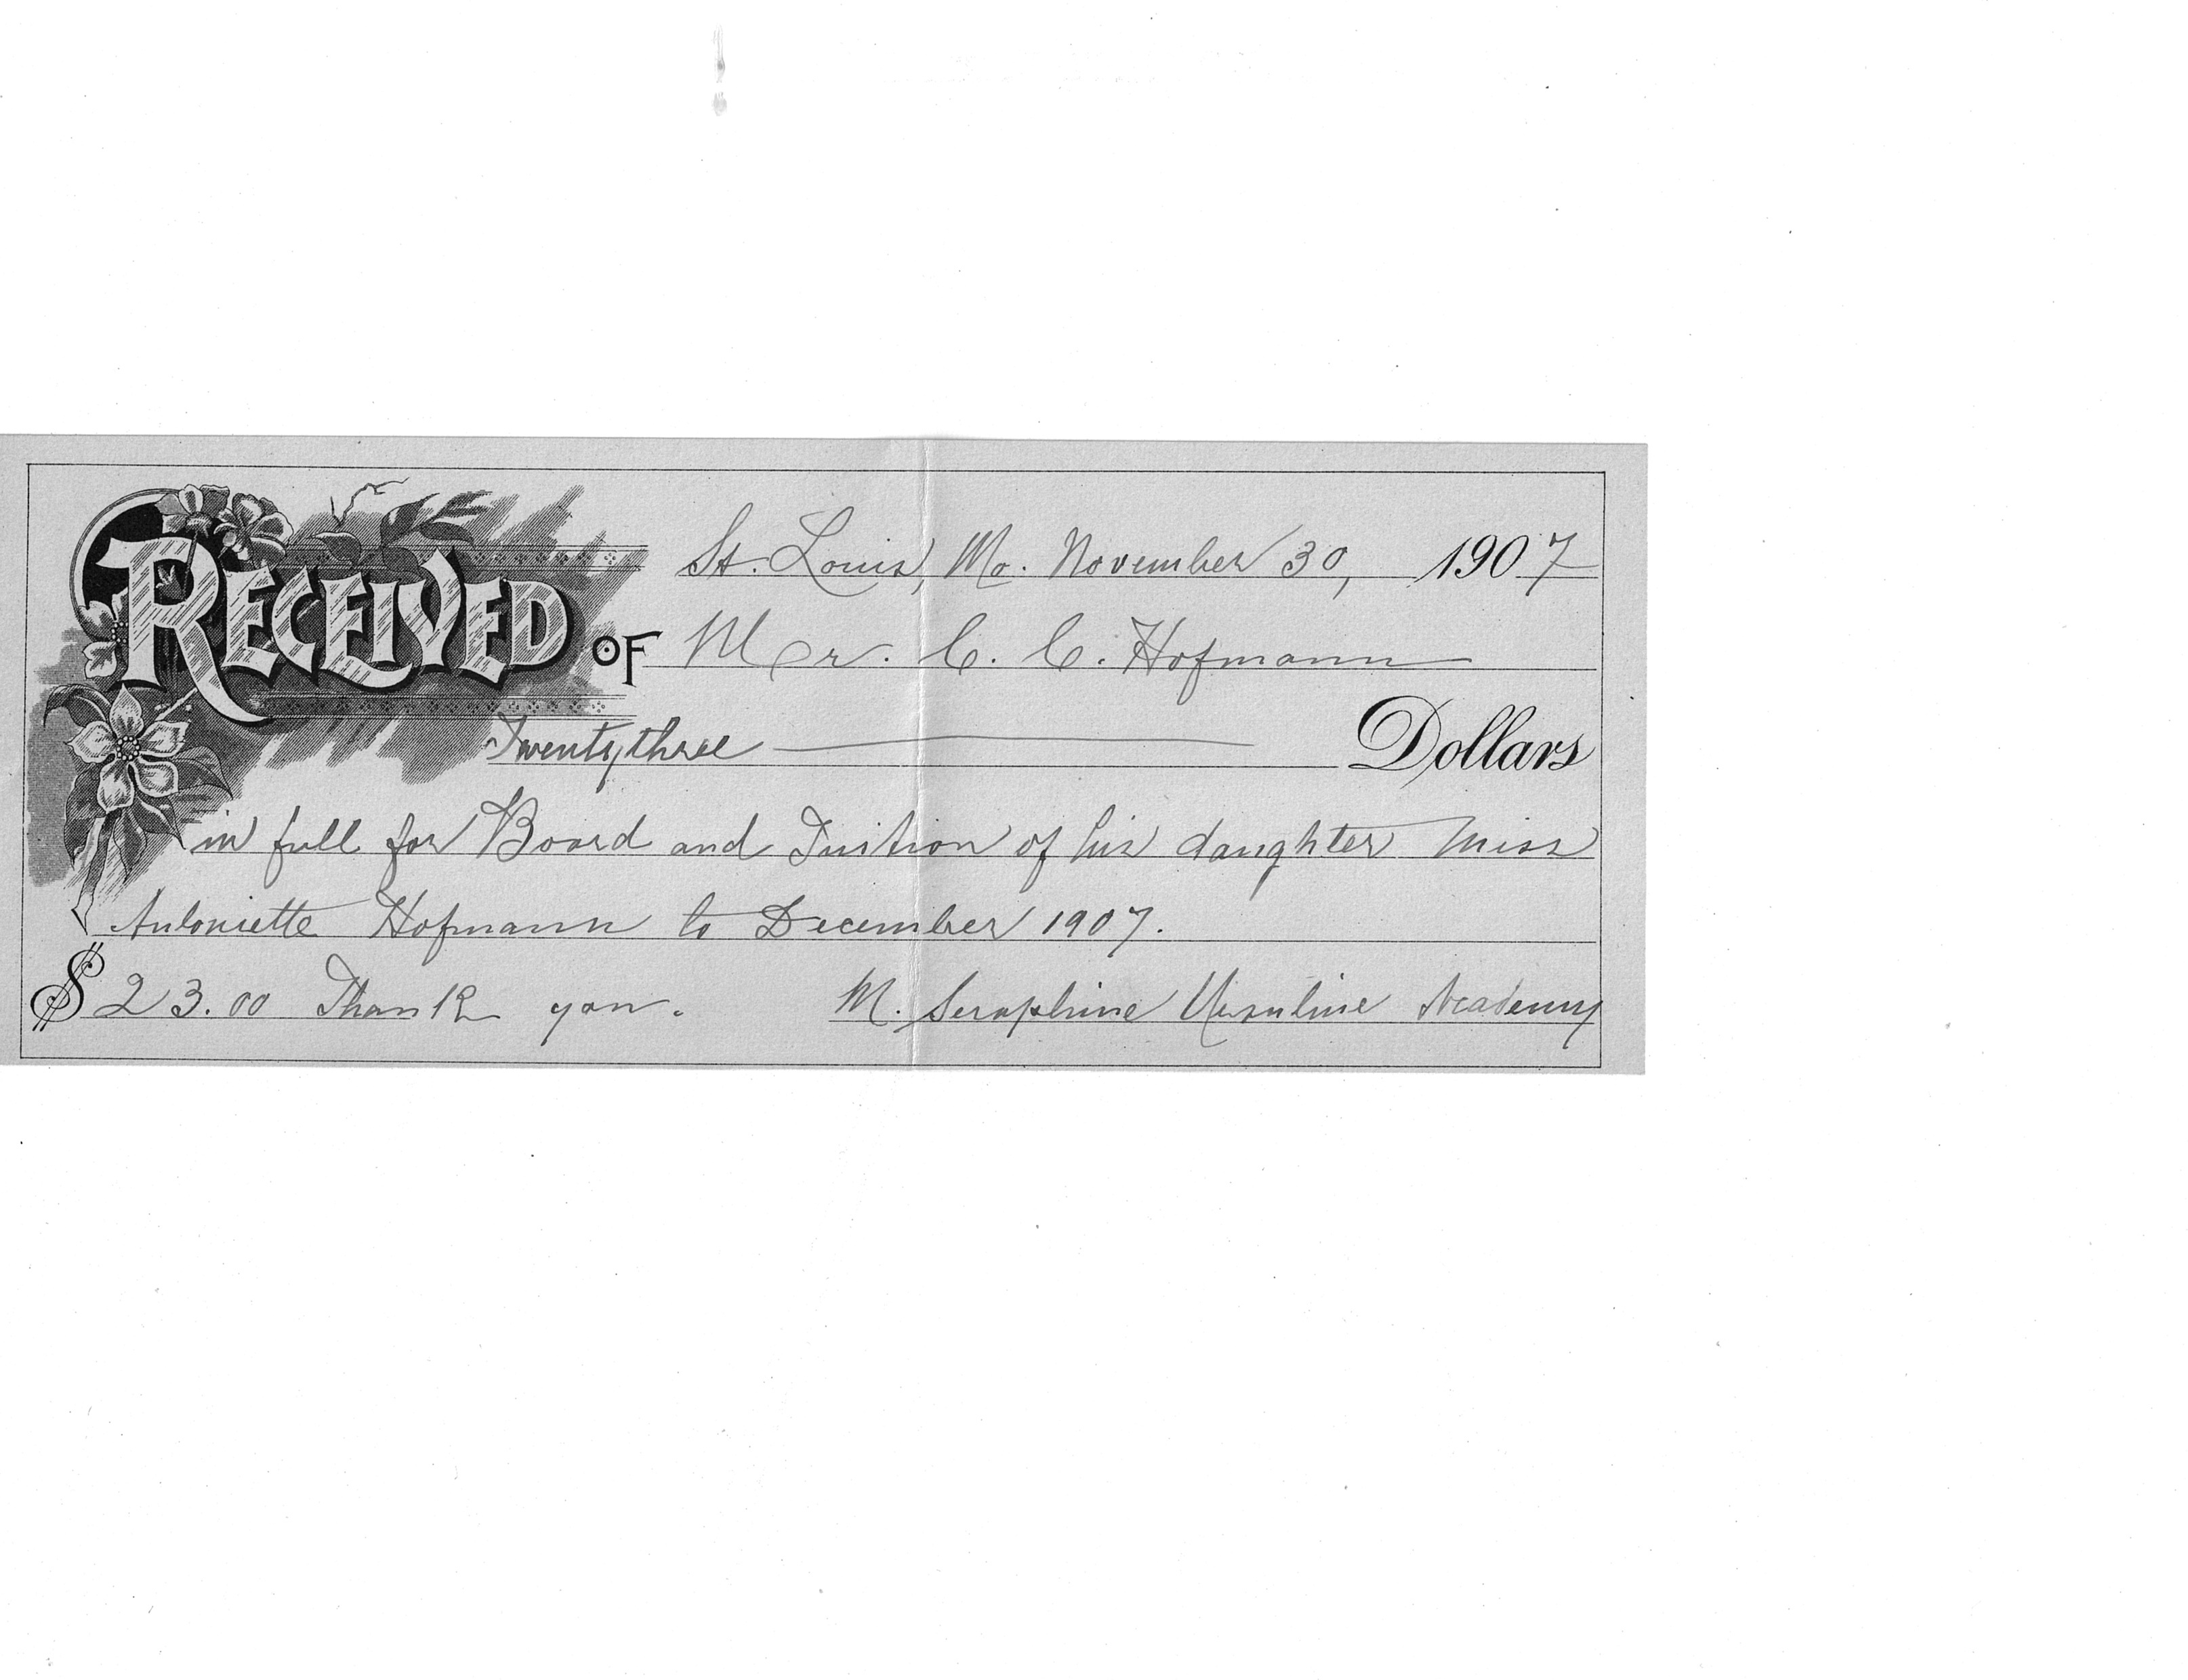 St. Louis, Mo. November 30, 1907
RECEIVED OF Mr. C. C. Hofmann
Twenty three Dollars
in full for Board and Tuition of his daughter Miss
Antoniette Hofmann to December 1907.
$ 23.00 Thank you. M. Seraphine Ursuline Academy